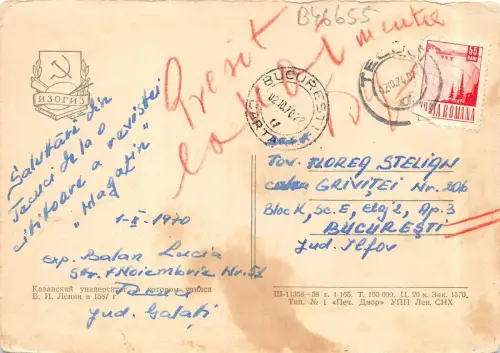 B46655
ИЗОГИЗ
Salutări din
Tecuci de la o
cititoare a revistei
"Magazin"
1-X-1970
exp. Balan Lucia
Str. 7 Noiembrie Nr. 51
Jud. Galați
BUCUREȘTI
CARTA
TECUCI
55 BANI
POSTA ROMANA
Tov. FLOREA STELIAN
Calea GRIVIȚEI Nr. 206
Bloc K, Sc. E, Etaj 2, Ap. 3
BUCUREȘTI
Jud. Ilfov
Казанский университет, в котором учился
В. И. Ленин в 1887 г
Ш-11358-58 г. 1-165. Т. 150 000. Ц. 20 к. Зак. 1570.
Тип. № 1 «Печ. Двор» УПП Лен. СНХ